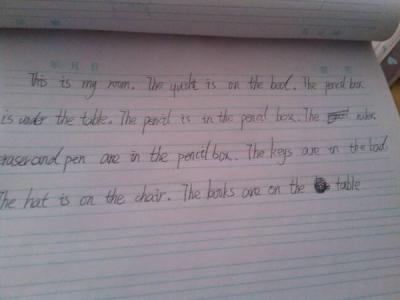 This is my room. The quilt is on the bed. The pencil box
is under the table. The pencil is in the pencil box. The ruler.
eraser and pen are in the pencil box. The keys are in the bad
The hat is on the chair. The books are on the table